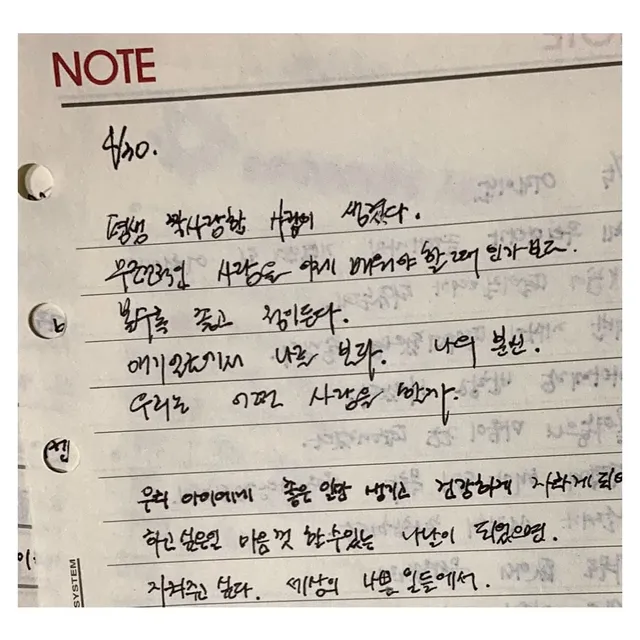 NOTE
4/30.
평생 짝사랑할 사람이 생겼다.
무조건적인 사랑을 이제 배워야 할 때 인가보다.
볼수록 좋고 정이든다.
에게서 나를 보라. 나의 분신.
우리는 어떤 사랑을 할까.
우리 아이에게 좋은 일만 생기고 건강하게 자라게 되어
하고 싶은일 마음껏 할 수 있는 나날이 되었으면.
지켜주고 싶다. 세상의 나쁜 일들에서.
SYSTEM